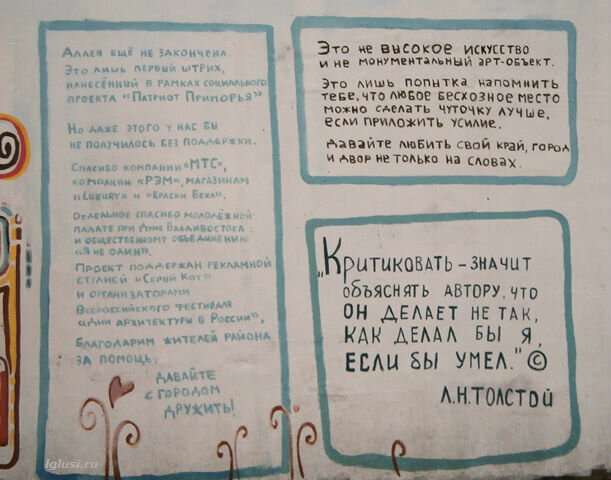 Аллея ещё не закончена.
Это лишь первый штрих,
нанесённый в рамках социального
проекта "Патриот Приморья"
Но даже этого у нас бы
не получилось без поддержки.
Спасибо компании "МТС",
компании "РЭМ", магазинам
"Luxury" и "Краски Века".
Отдельное спасибо молодёжной
палате при Думе Владивостока
и общественному объединению
"Я не один".
Проект поддержан рекламной
студией "Серый Кот"
и организаторами
Всероссийского фестиваля
"Дни архитектуры в России".
Благодарим жителей района
за помощь.
Давайте
с городом
дружить!
Это не высокое искусство
и не монументальный арт-объект.
Это лишь попытка напомнить
тебе, что любое бесхозное место
можно сделать чуточку лучше,
если приложить усилие.
Давайте любить свой край, город
и двор не только на словах.
„Критиковать – значит
объяснять автору, что
он делает не так,
как делал бы я,
если бы умел." ©
Л.Н.Толстой
Iglusi.ru